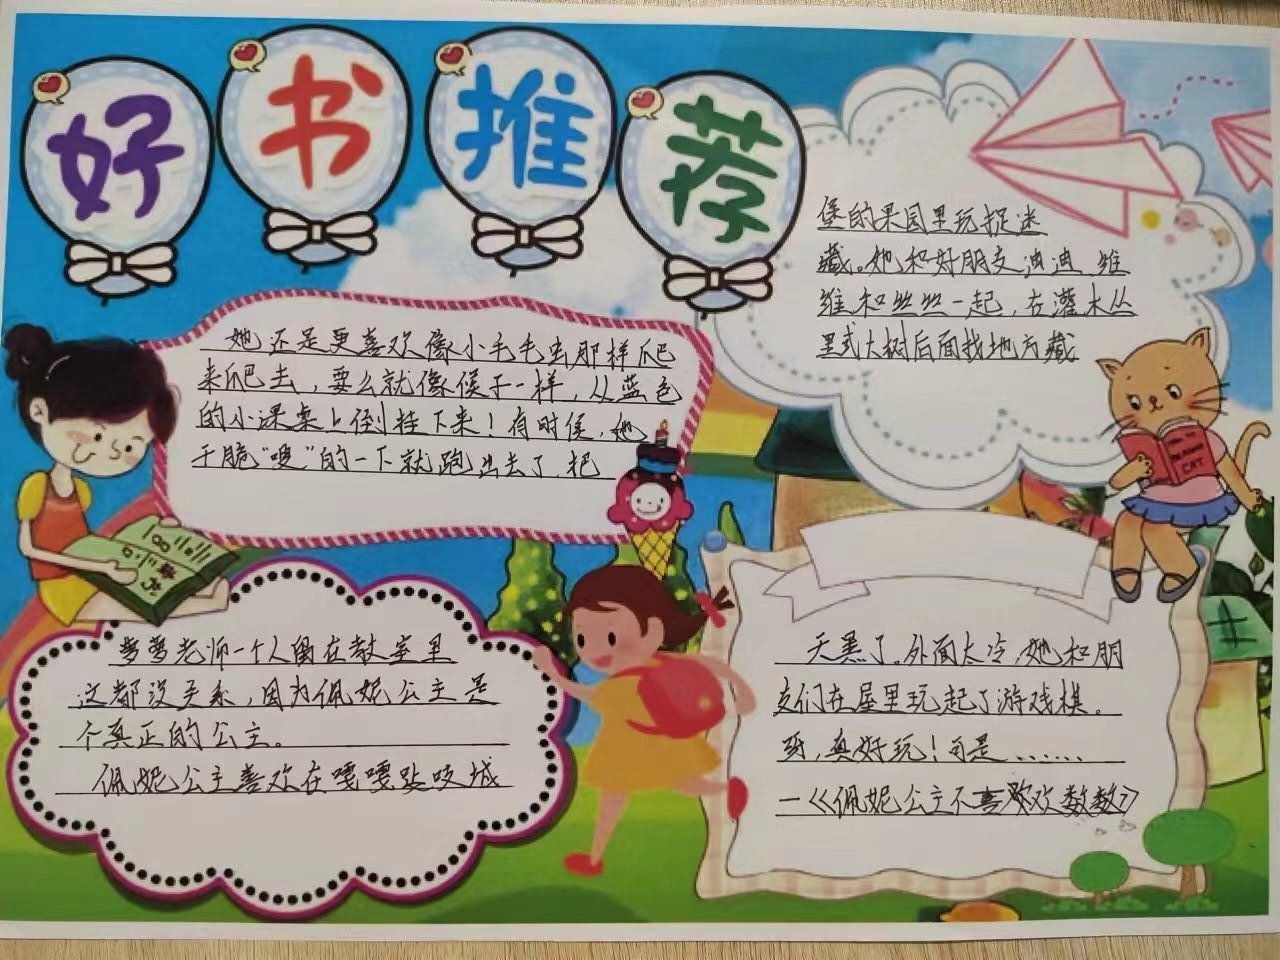 好书推荐
她还是更喜欢像小毛毛虫那样爬
来爬去，要么就像猴子一样，从蓝色
的小课桌上倒挂下来！有时候，她
干脆“嗖”的一下就跑出去了，把
梦梦老师一个人留在教室里
这都没关系，因为佩妮公主是
个真正的公主。
佩妮公主喜欢在嘎嘎吱吱城
堡的果园里玩捉迷
藏。她和好朋友迪迪 维
维和丝丝一起，在灌木丛
里或大树后面找地方藏
天黑了，外面太冷，她和朋
友们在屋里玩起了游戏棋。
呀，真好玩！可是……
—《佩妮公主不喜欢数数》